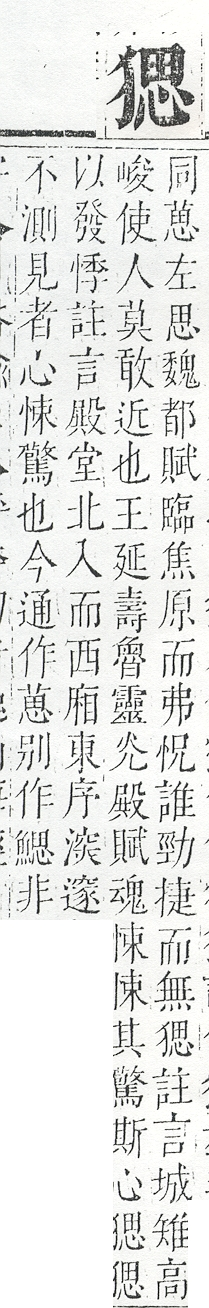 𤟧
同葸左思魏都賦臨焦原而弗怳誰勁捷而無𤟧註言城雉高
峻使人莫敢近也王延壽魯靈灮殿賦魂悚悚其驚斯心𤟧𤟧
以發悸註言殿堂北入而西廂東序深邃
不測見者心悚驚也今通作葸别作鰓非